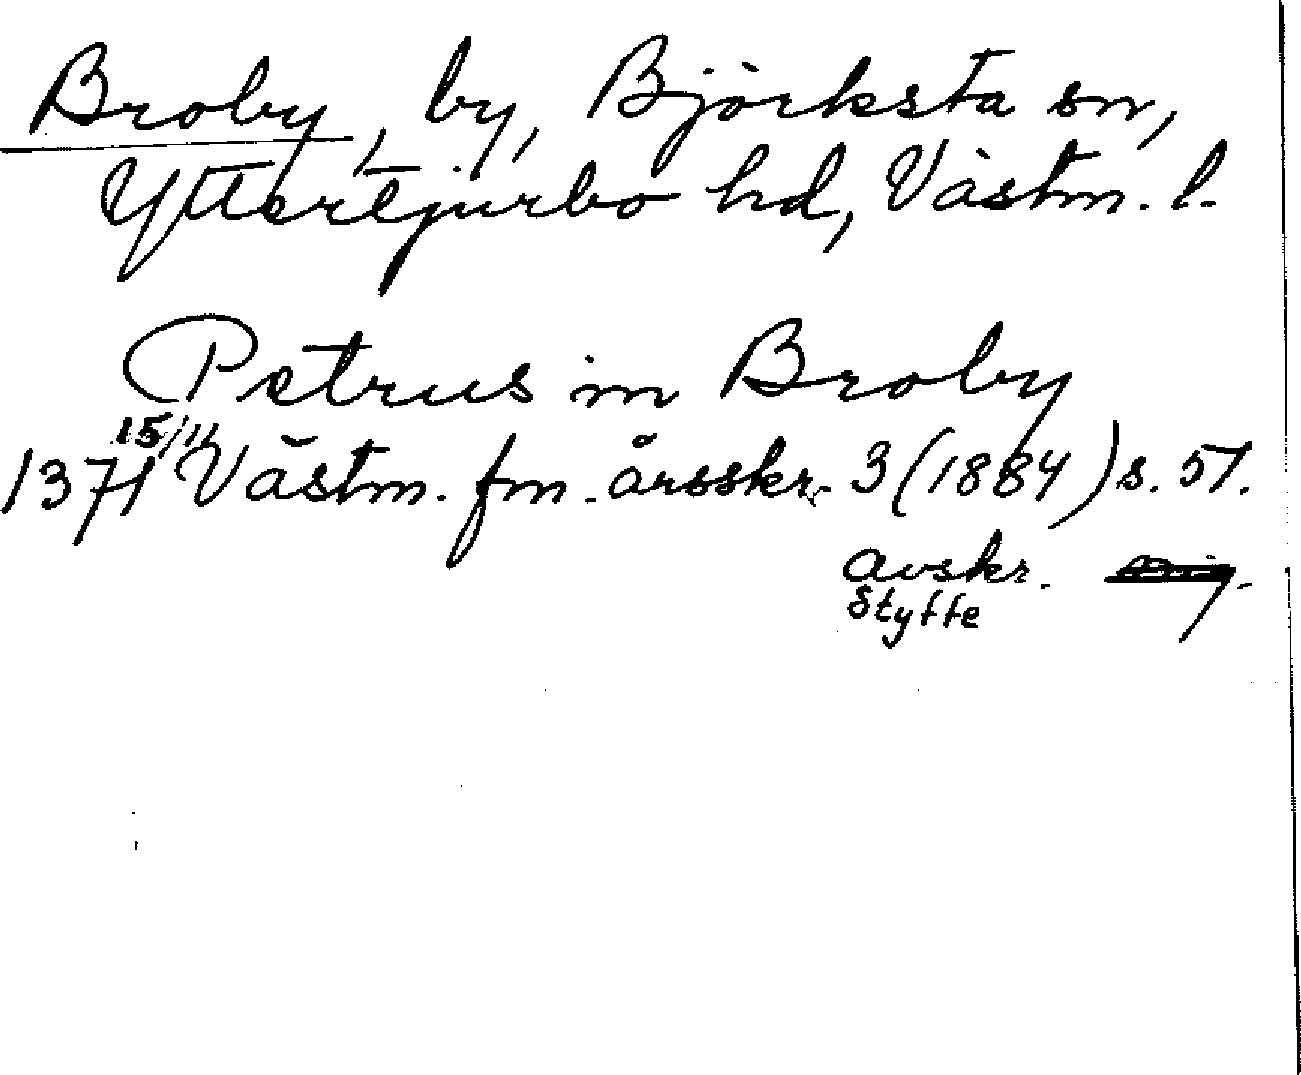 Broby, by, Björksta sn,
Yttertjurbo hd, Västm. l.
Petrus in Broby
15/11
1371 Västm. fm. årsskr. 3 (1884) s. 57.
avskr.
Styffe